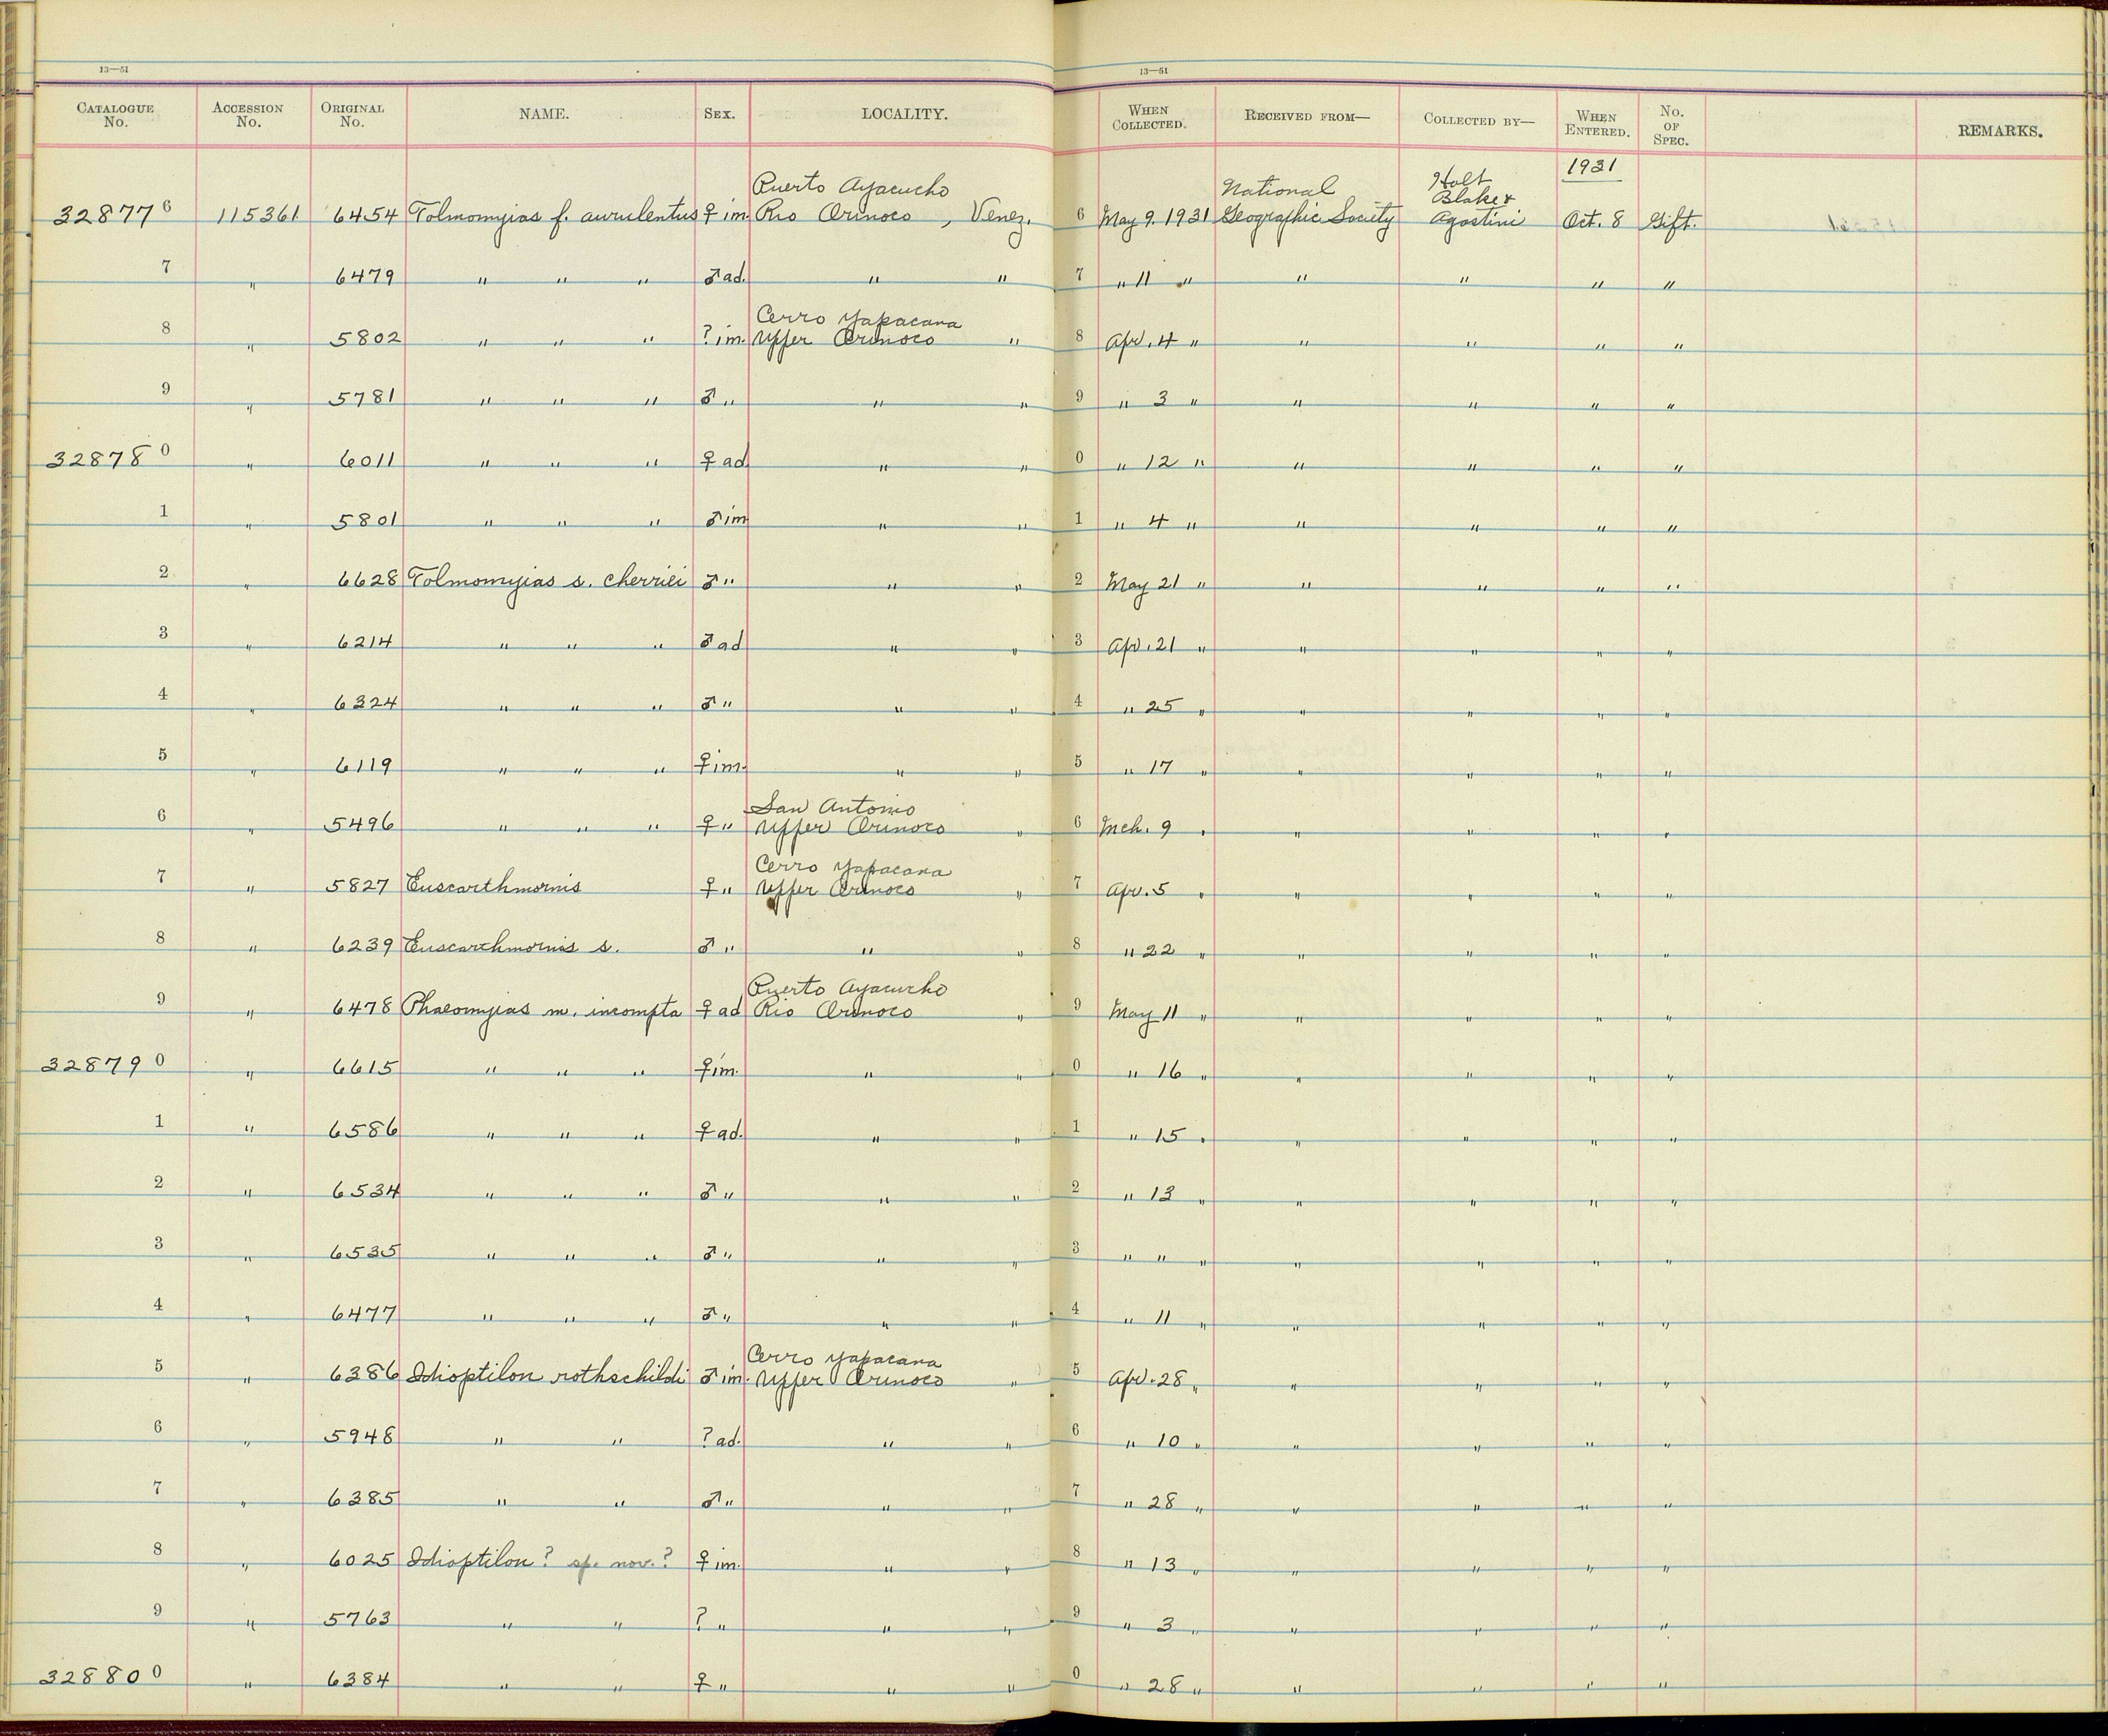 13—51
13—51
CATALOGUE No. ACCESSION No. ORIGINAL No. NAME. SEX. LOCALITY. WHEN COLLECTED. RECEIVED FROM— COLLECTED BY— WHEN ENTERED. No. OF SPEC. REMARKS.
1931
Puerto Ayacucho National Holt Blake &
328776 115361 6454 Tolmomyias f. aurulentus ♀ im. Rio Orinoco, Venez. 6 May 9. 1931 Geographic Society Agostini Oct. 8 Gift.
7 " 6479 " " " ♂ ad. " " 7 " 11 " " " " "
Cerro Yapacana
8 " 5802 " " " ? im. Upper Orinoco " 8 Apr. 4 " " " " "
9 " 5781 " " " ♂ " " " 9 " 3 " " " " "
328780 " 6011 " " " ♀ ad " " 0 " 12 " " " " "
1 " 5801 " " " ♂ im " " 1 " 4 " " " " "
2 " 6628 Tolmomyias s. cherriei ♂ " " " 2 May 21 " " " " "
3 " 6214 " " " ♂ ad " " 3 Apr. 21 " " " " "
4 " 6324 " " " ♂ " " " 4 " 25 " " " " "
5 " 6119 " " " ♀ im. " " 5 " 17 " " " " "
San Antonio
6 " 5496 " " " ♀ " Upper Orinoco " 6 Mch. 9 " " " " "
Cerro Yapacana
7 " 5827 Euscarthmornis ♀ " Upper Orinoco " 7 Apr. 5 " " " " "
8 " 6239 Euscarthmornis s. ♂ " " " 8 " 22 " " " " "
Puerto Ayacucho
9 " 6478 Phaeomyias m. incompta ♀ ad Rio Orinoco " 9 May 11 " " " " "
328790 " 6615 " " " ♀ im. " " 0 " 16 " " " " "
1 " 6586 " " " ♀ ad. " " 1 " 15 " " " " "
2 " 6534 " " " ♂ " " " 2 " 13 " " " " "
3 " 6535 " " " ♂ " " " 3 " " " " " " "
4 " 6477 " " " ♂ " " " 4 " 11 " " " " "
Cerro Yapacana
5 " 6386 Idioptilon rothschildi ♂ im. Upper Orinoco " 5 Apr. 28 " " " " "
6 " 5948 " " ? ad. " " 6 " 10 " " " " "
7 " 6385 " " ♂ " " " 7 " 28 " " " " "
8 " 6025 Idioptilon? sp. nov.? ♀ im. " " 8 " 13 " " " " "
9 " 5763 " " ? " " " 9 " 3 " " " " "
328800 " 6384 " " ♀ " " " 0 " 28 " " " " "